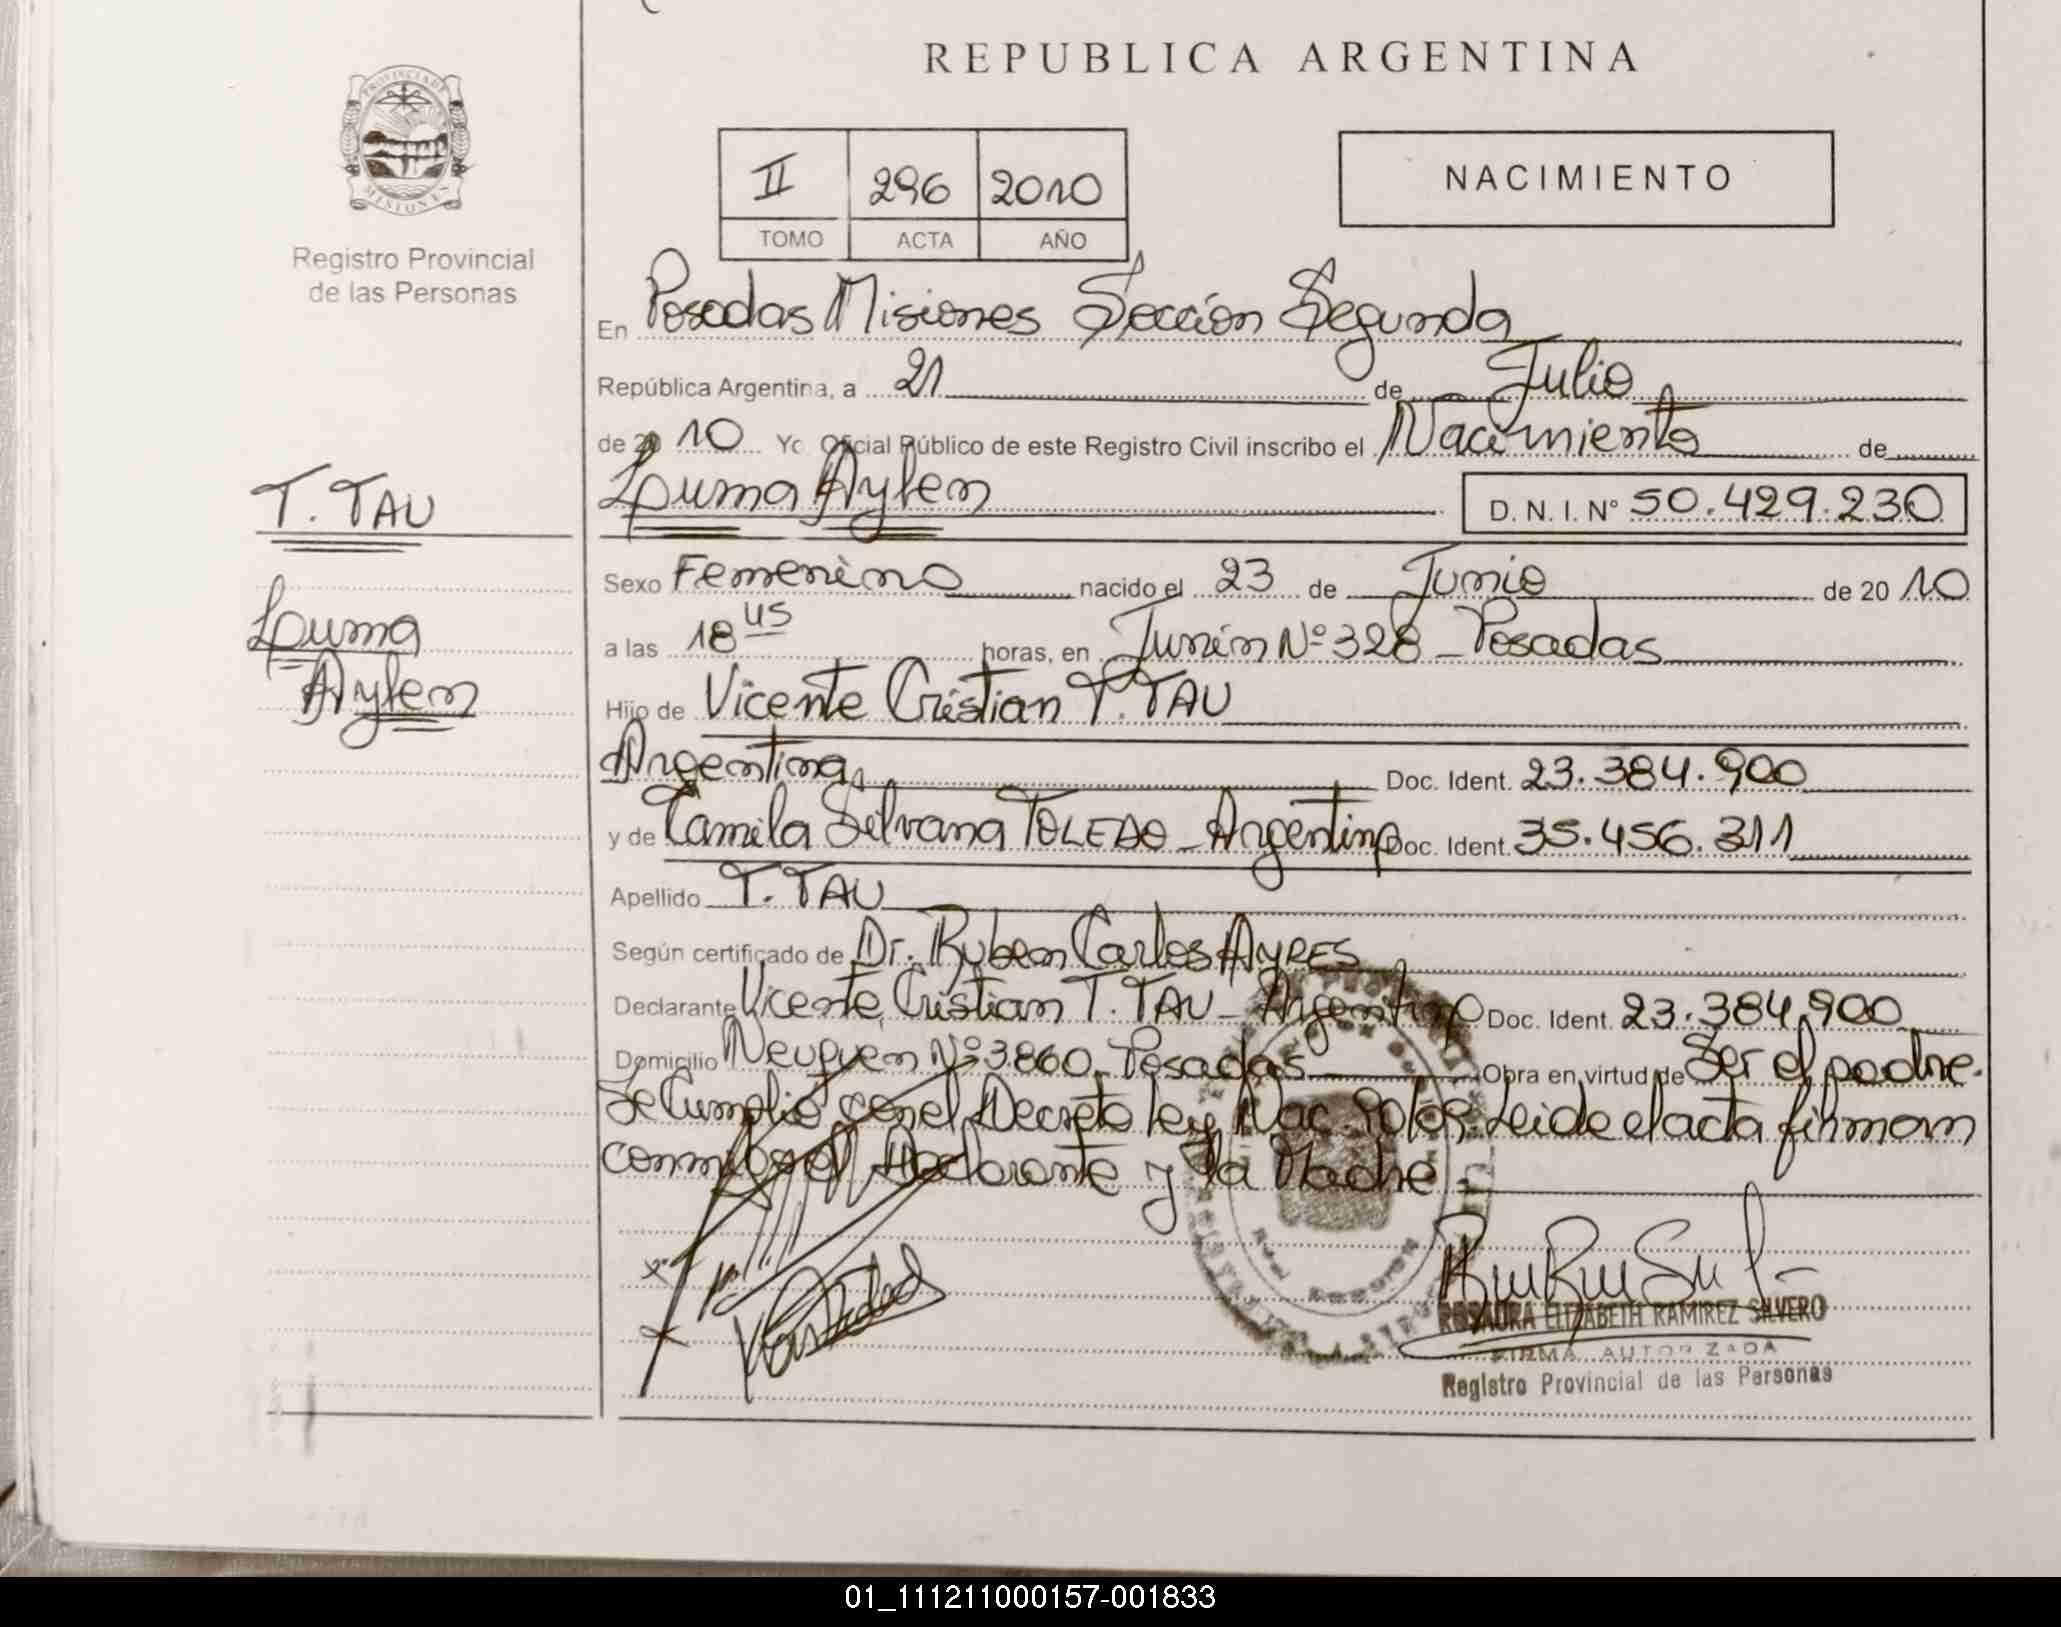 REPUBLICA ARGENTINA
PROVINCIA DE
MISIONES
Registro Provincial
de las Personas
II 296 2010
TOMO ACTA AÑO
NACIMIENTO
En Posadas Misiones Sección Segunda
República Argentina, a 21 de Julio
de 2010 Yo Oficial Público de este Registro Civil inscribo el Nacimiento de
T. TAU
Luma Aylen D. N. I. Nº 50.429.230
Sexo Femenino nacido el 23 de Junio de 2010
Luma
Aylen
a las 18 45 horas, en Junín Nº 328 - Posadas
Hijo de Vicente Cristian T. TAU
Argentina Doc. Ident. 23.384.900
y de Camila Silvana TOLEDO - Argentina Doc. Ident. 35.456.311
Apellido T. TAU
Según certificado de Dr. Ruben Carlos AYRES
Declarante Vicente Cristian T. TAU - Argentino Doc. Ident. 23.384.900
Domicilio Neuquen Nº 3860 - Posadas Obra en virtud de Ser el padre.
Se Cumplió con el Decreto Ley Nac. Leide el acta firman
conmigo el Declarante y la Madre
ROSAURA ELIZABETH RAMIREZ SILVERO
FIRMA AUTORIZADA
Registro Provincial de las Personas
01_111211000157-001833